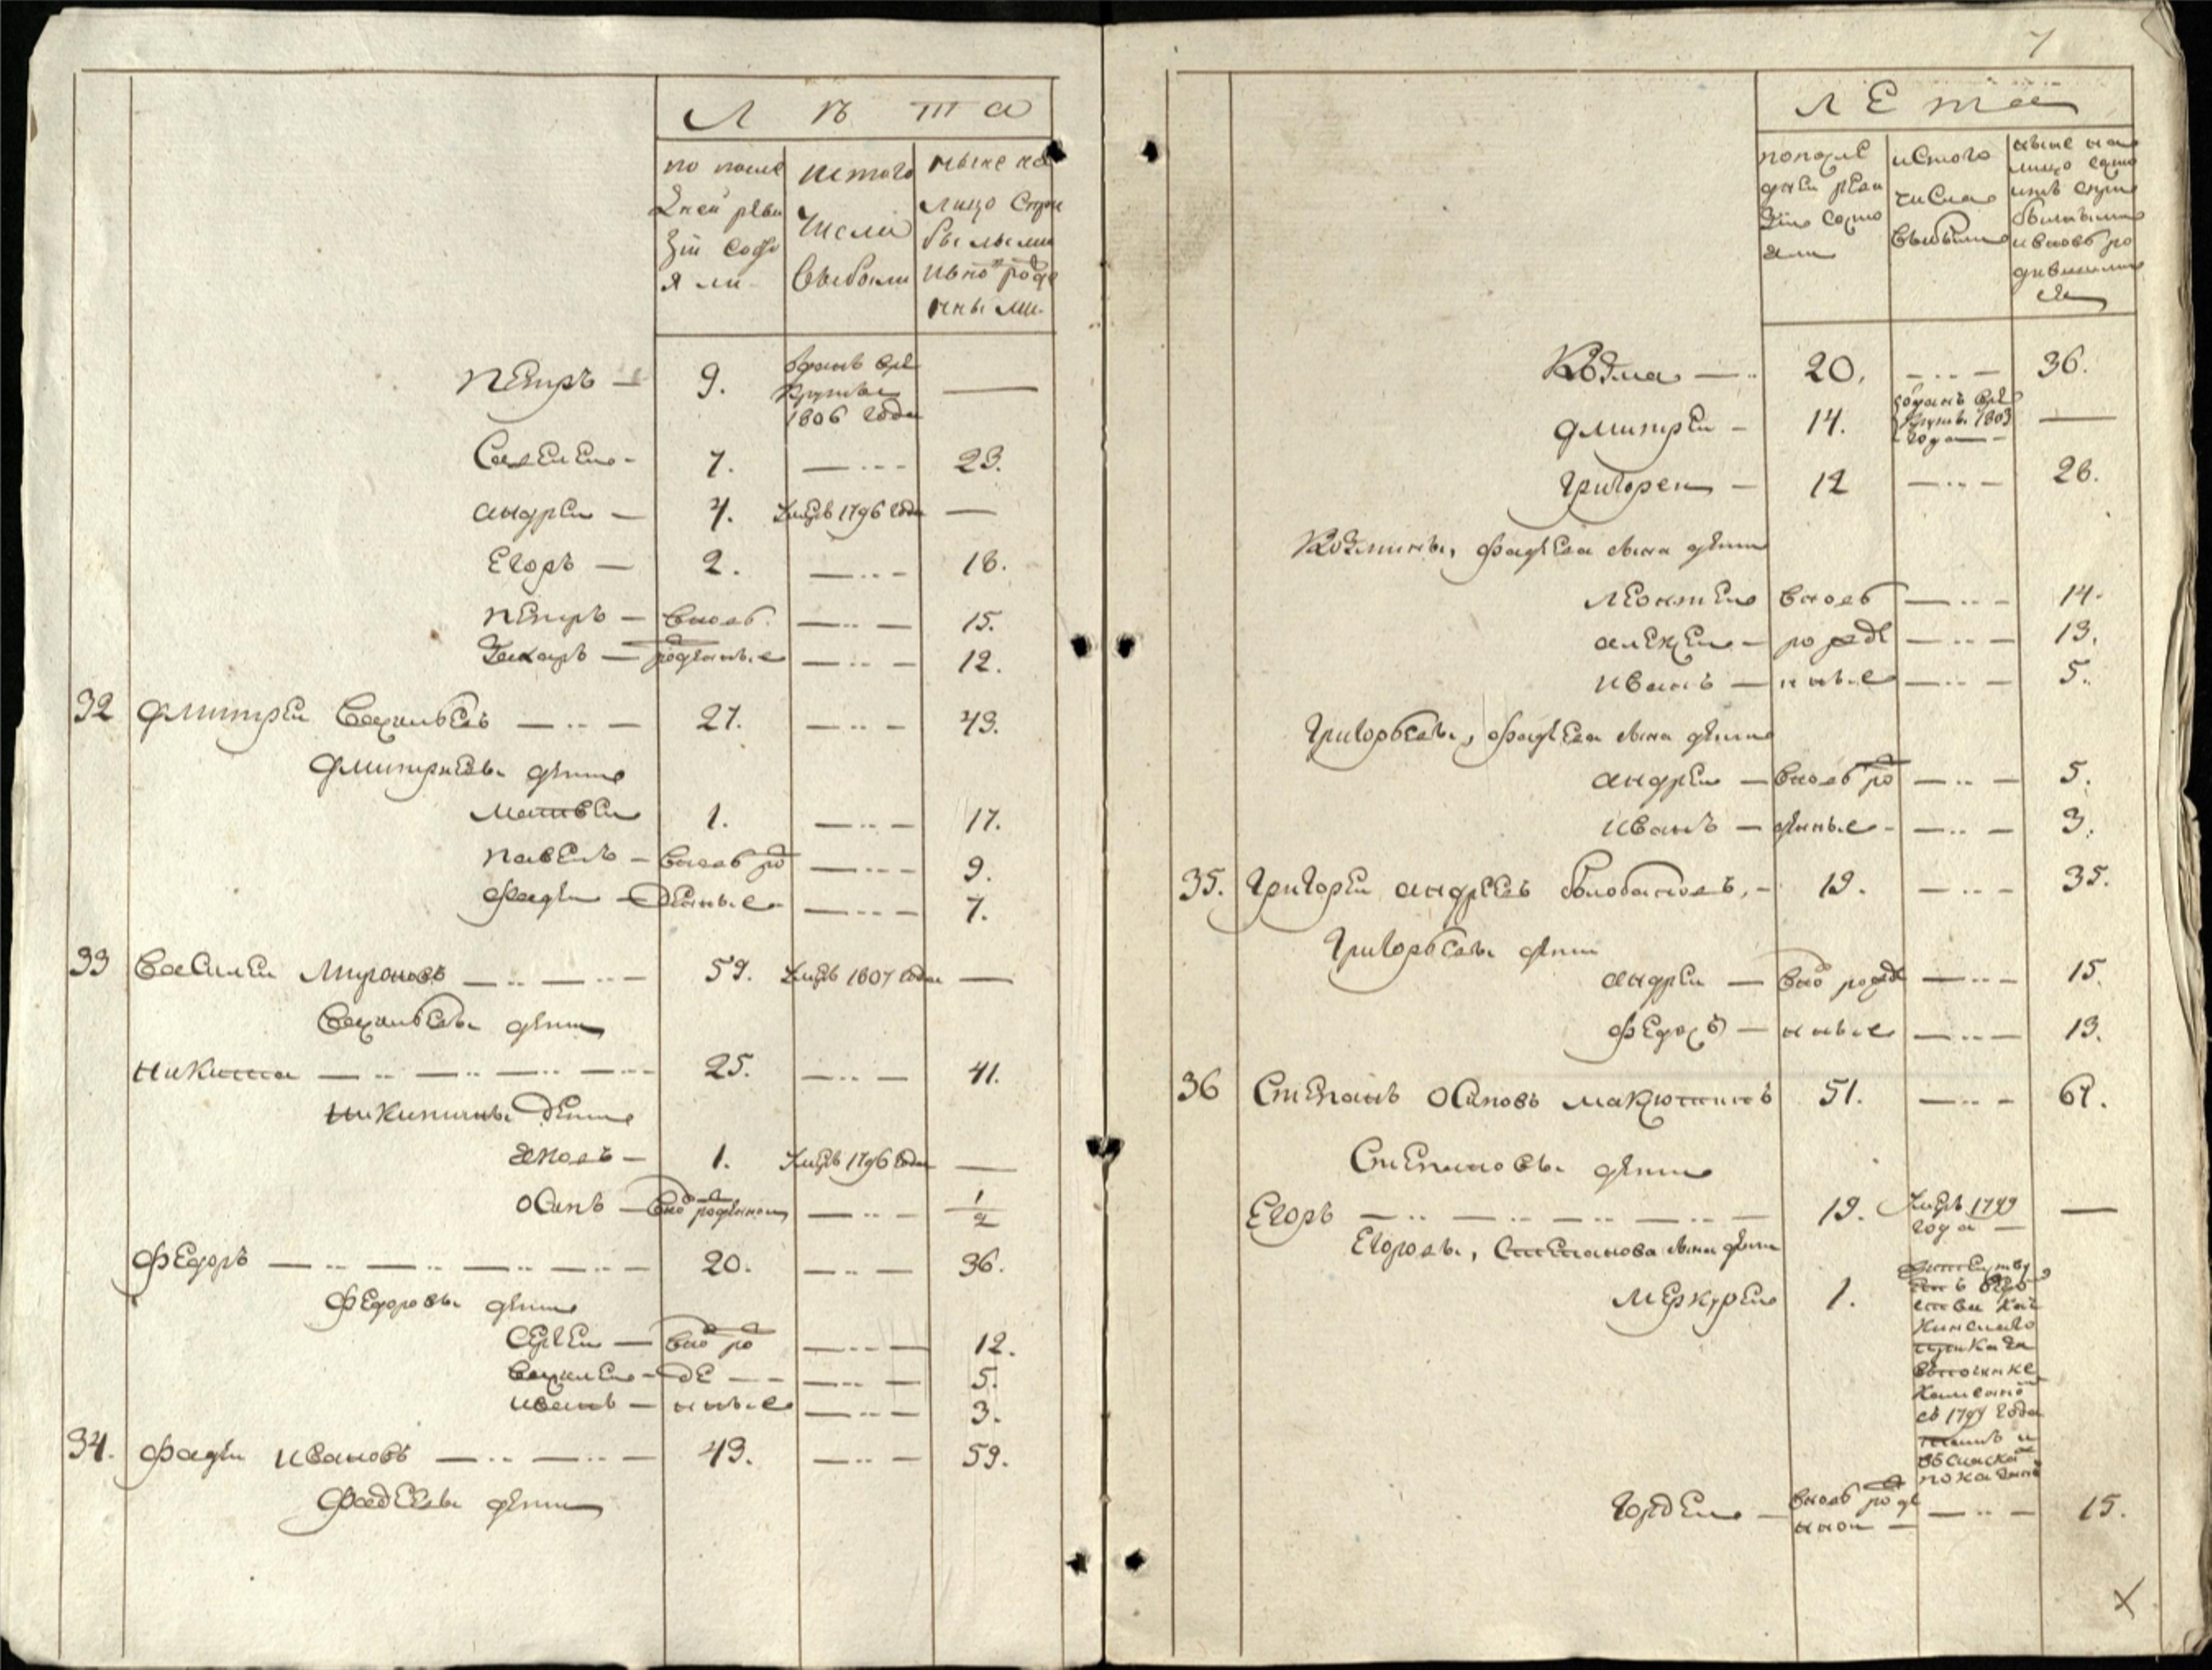 Л ѣ т а
по после
дней реви
зіи состо
яли
из того
числа
выбыли
ныне на
лицо с при
былыми
и внов роде
нными
Петръ — 9. Отданъ в ре
круты
1806 года —
Савелей — 7. — 23.
Андрей — 4. Умеръ 1796 года —
Егоръ — 2. — 18.
Петръ — вновь — 15.
Захаръ — рожденные — 12.
32 Дмитрей Васильевъ — 27. — 43.
Дмитриевы дети
Матвей 1. — 17.
Павелъ — вновь ро — 9.
Фадей — жденные — 7.
33 Василей Мироновъ — 59. Умеръ 1807 года —
Васильевы дети
Никита — 25. — 41.
Никитины дети
Яковъ — 1. Умеръ 1796 года —
Осипъ — внов рожденной — 1/2
Федоръ — 20. — 36.
Федоровы дети
Сергей — внов ро — 12.
Василей — жде — 5.
Иванъ — нные — 3.
34. Фадей Ивановъ — 43. — 59.
Фадеевы дети
7
Л Е т а
по после
дней реви
зіи состо
яли
из того
числа
выбыли
ныне на
лицо состо
итъ с при
былыми
и вновь ро
дившими
ся
Козма — 20. — 36.
Дмитрей — 14. отданъ в ре
круты 1803
года —
Григорей — 12 — 28.
Козмины, Фадеева сына дети
Леонтей вновь — 14.
Алексей — рожде — 13.
Иванъ — нные — 5.
Григорьевы, Фадеева сына дети
Андрей — вновь ро — 5.
Иванъ — жденные — 3.
35. Григорей Андреевъ Болобановъ, — 19. — 35.
Григорьевы дети
Андрей — внов рожде — 15.
Федоръ — нные — 13.
36 Степанъ Осиповъ Макюшинъ 51. — 67.
Степановы дети
Егоръ — 19. Умеръ 1799
года —
Егоровы, Степанова сына дети
Меркурей 1.
съ 1799 года
тамъ и
въ сказке
показанъ
Гордей — вновь рожде
нной — 15.